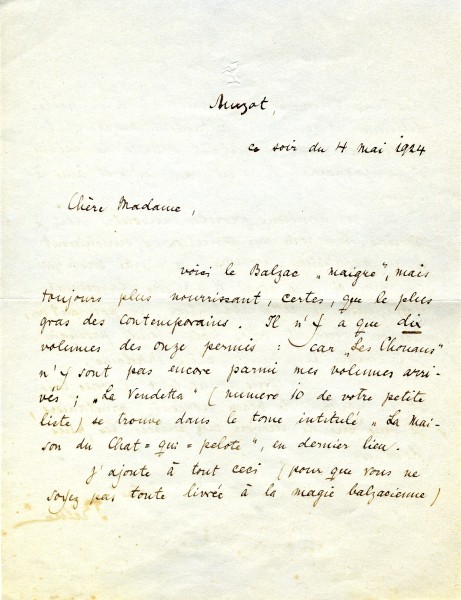 Muzot,
ce soir du 4 mai 1924
Chère Madame,
voici le Balzac „maigre", mais
toujours plus nourrissant, certes, que le plus
gras des contemporains. Il n'y a que dix
volumes des onze permis : car „Les Chouans"
n'y sont pas encore parmi mes volumes arri-
vés ; „La Vendetta" (numéro 10 de votre petite
liste) se trouve dans le tome intitulé „La Mai-
son du Chat=qui=pelote", en dernier lieu.
J'ajoute à tout ceci (pour que vous ne
soyez pas toute livrée à la magie balzacienne)